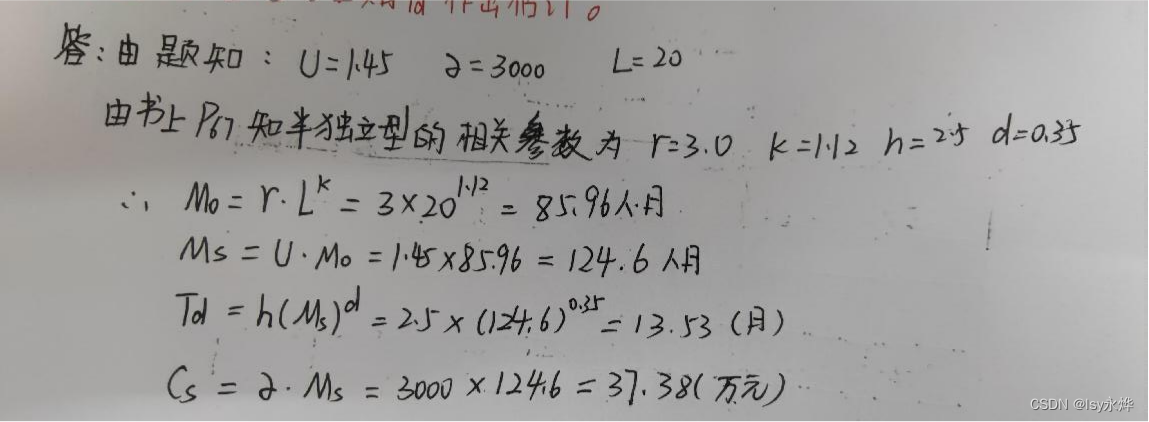 作出估计。
答:由题知: U=1.45 a=3000 L=20
由书上P67知半独立型的相关参数为 r=3.0 k=1.12 h=2.5 d=0.35
∴ M₀=r·L^k=3×20^1.12=85.96人·月
Ms=U·M₀=1.45×85.96=124.6人月
Td=h(Ms)^d=2.5×(124.6)^0.35=13.53(月)
Cs=a·Ms=3000×124.6=37.38(万元)
CSDN @lsy永烨